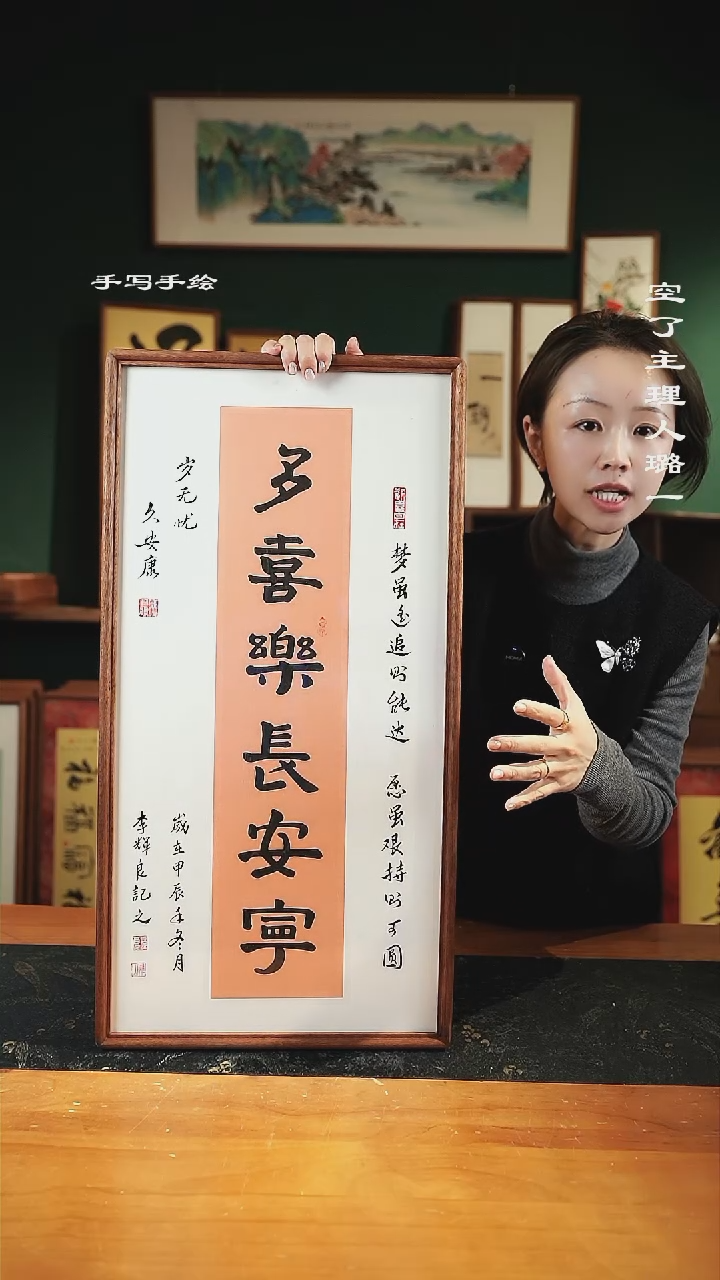 手写手绘
空了主理人璐一
多喜樂長安寧
梦虽遥追则能达 愿虽艰持则可圆
岁无忧
久安康
歲在甲辰年冬月
李輝良記之
一
福